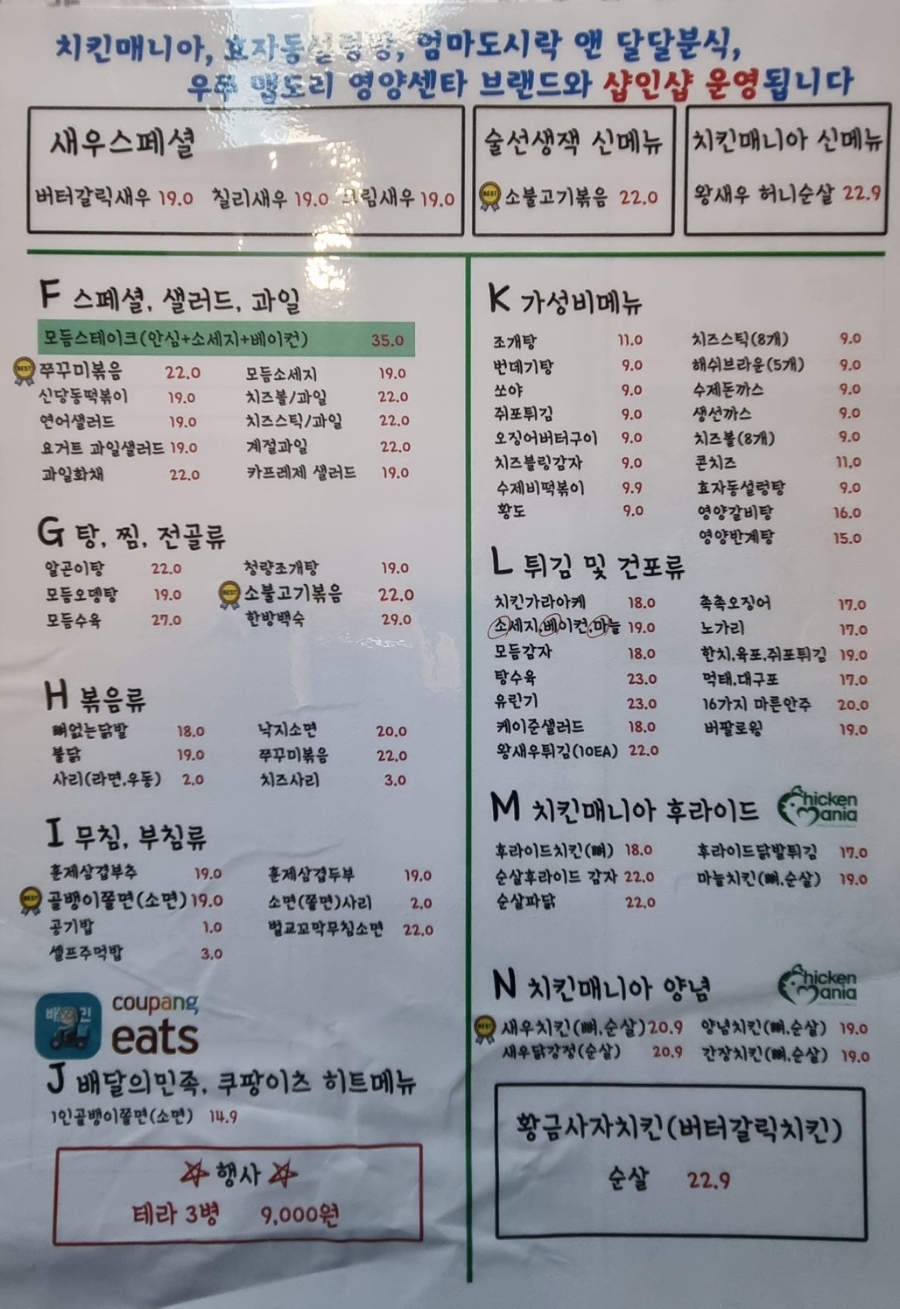 치킨매니아, 효자동설렁탕, 엄마도시락 앤 달달분식,
우쭈 맵도리 영양센타 브랜드와 샵인샵 운영됩니다
새우스페셜
버터갈릭새우 19.0 칠리새우 19.0 크림새우 19.0
술선생잭 신메뉴
BEST 소불고기볶음 22.0
치킨매니아 신메뉴
왕새우 허니순살 22.9
F 스페셜, 샐러드, 과일
모듬스테이크(안심+소세지+베이컨) 35.0
BEST 쭈꾸미볶음 22.0 모듬소세지 19.0
신당동떡볶이 19.0 치즈볼/과일 22.0
연어샐러드 19.0 치즈스틱/과일 22.0
요거트 과일샐러드 19.0 계절과일 22.0
과일화채 22.0 카프레제 샐러드 19.0
G 탕, 찜, 전골류
알곤이탕 22.0 청량조개탕 19.0
모듬오뎅탕 19.0 BEST 소불고기볶음 22.0
모듬수육 27.0 한방백숙 29.0
H 볶음류
뼈없는닭발 18.0 낙지소면 20.0
불닭 19.0 쭈꾸미볶음 22.0
사리(라면,우동) 2.0 치즈사리 3.0
I 무침, 부침류
훈제삼겹부추 19.0 훈제삼겹두부 19.0
BEST 골뱅이쫄면(소면) 19.0 소면(쫄면)사리 2.0
공기밥 1.0 벌교꼬막무침소면 22.0
셀프주먹밥 3.0
배민 coupang
eats
J 배달의민족, 쿠팡이츠 히트메뉴
1인골뱅이쫄면(소면) 14.9
행사
테라 3병 9,000원
K 가성비메뉴
조개탕 11.0 치즈스틱(8개) 9.0
번데기탕 9.0 해쉬브라운(5개) 9.0
쏘야 9.0 수제돈까스 9.0
쥐포튀김 9.0 생선까스 9.0
오징어버터구이 9.0 치즈볼(8개) 9.0
치즈블링감자 9.0 콘치즈 11.0
수제비떡볶이 9.9 효자동설렁탕 9.0
황도 9.0 영양갈비탕 16.0
영양반계탕 15.0
L 튀김 및 건포류
치킨가라아케 18.0 촉촉오징어 17.0
소세지,베이컨,마늘 19.0 노가리 17.0
모듬감자 18.0 한치,육포,쥐포튀김 19.0
탕수육 23.0 먹태,대구포 17.0
유린기 23.0 16가지 마른안주 20.0
케이준샐러드 18.0 버팔로윙 19.0
왕새우튀김(10EA) 22.0
M 치킨매니아 후라이드 Chicken Mania
후라이드치킨(뼈) 18.0 후라이드닭발튀김 17.0
순살후라이드 감자 22.0 마늘치킨(뼈,순살) 19.0
순살파닭 22.0
N 치킨매니아 양념 Chicken Mania
BEST 새우치킨(뼈,순살) 20.9 양념치킨(뼈,순살) 19.0
새우닭강정(순살) 20.9 간장치킨(뼈,순살) 19.0
황금사자치킨(버터갈릭치킨)
순살 22.9